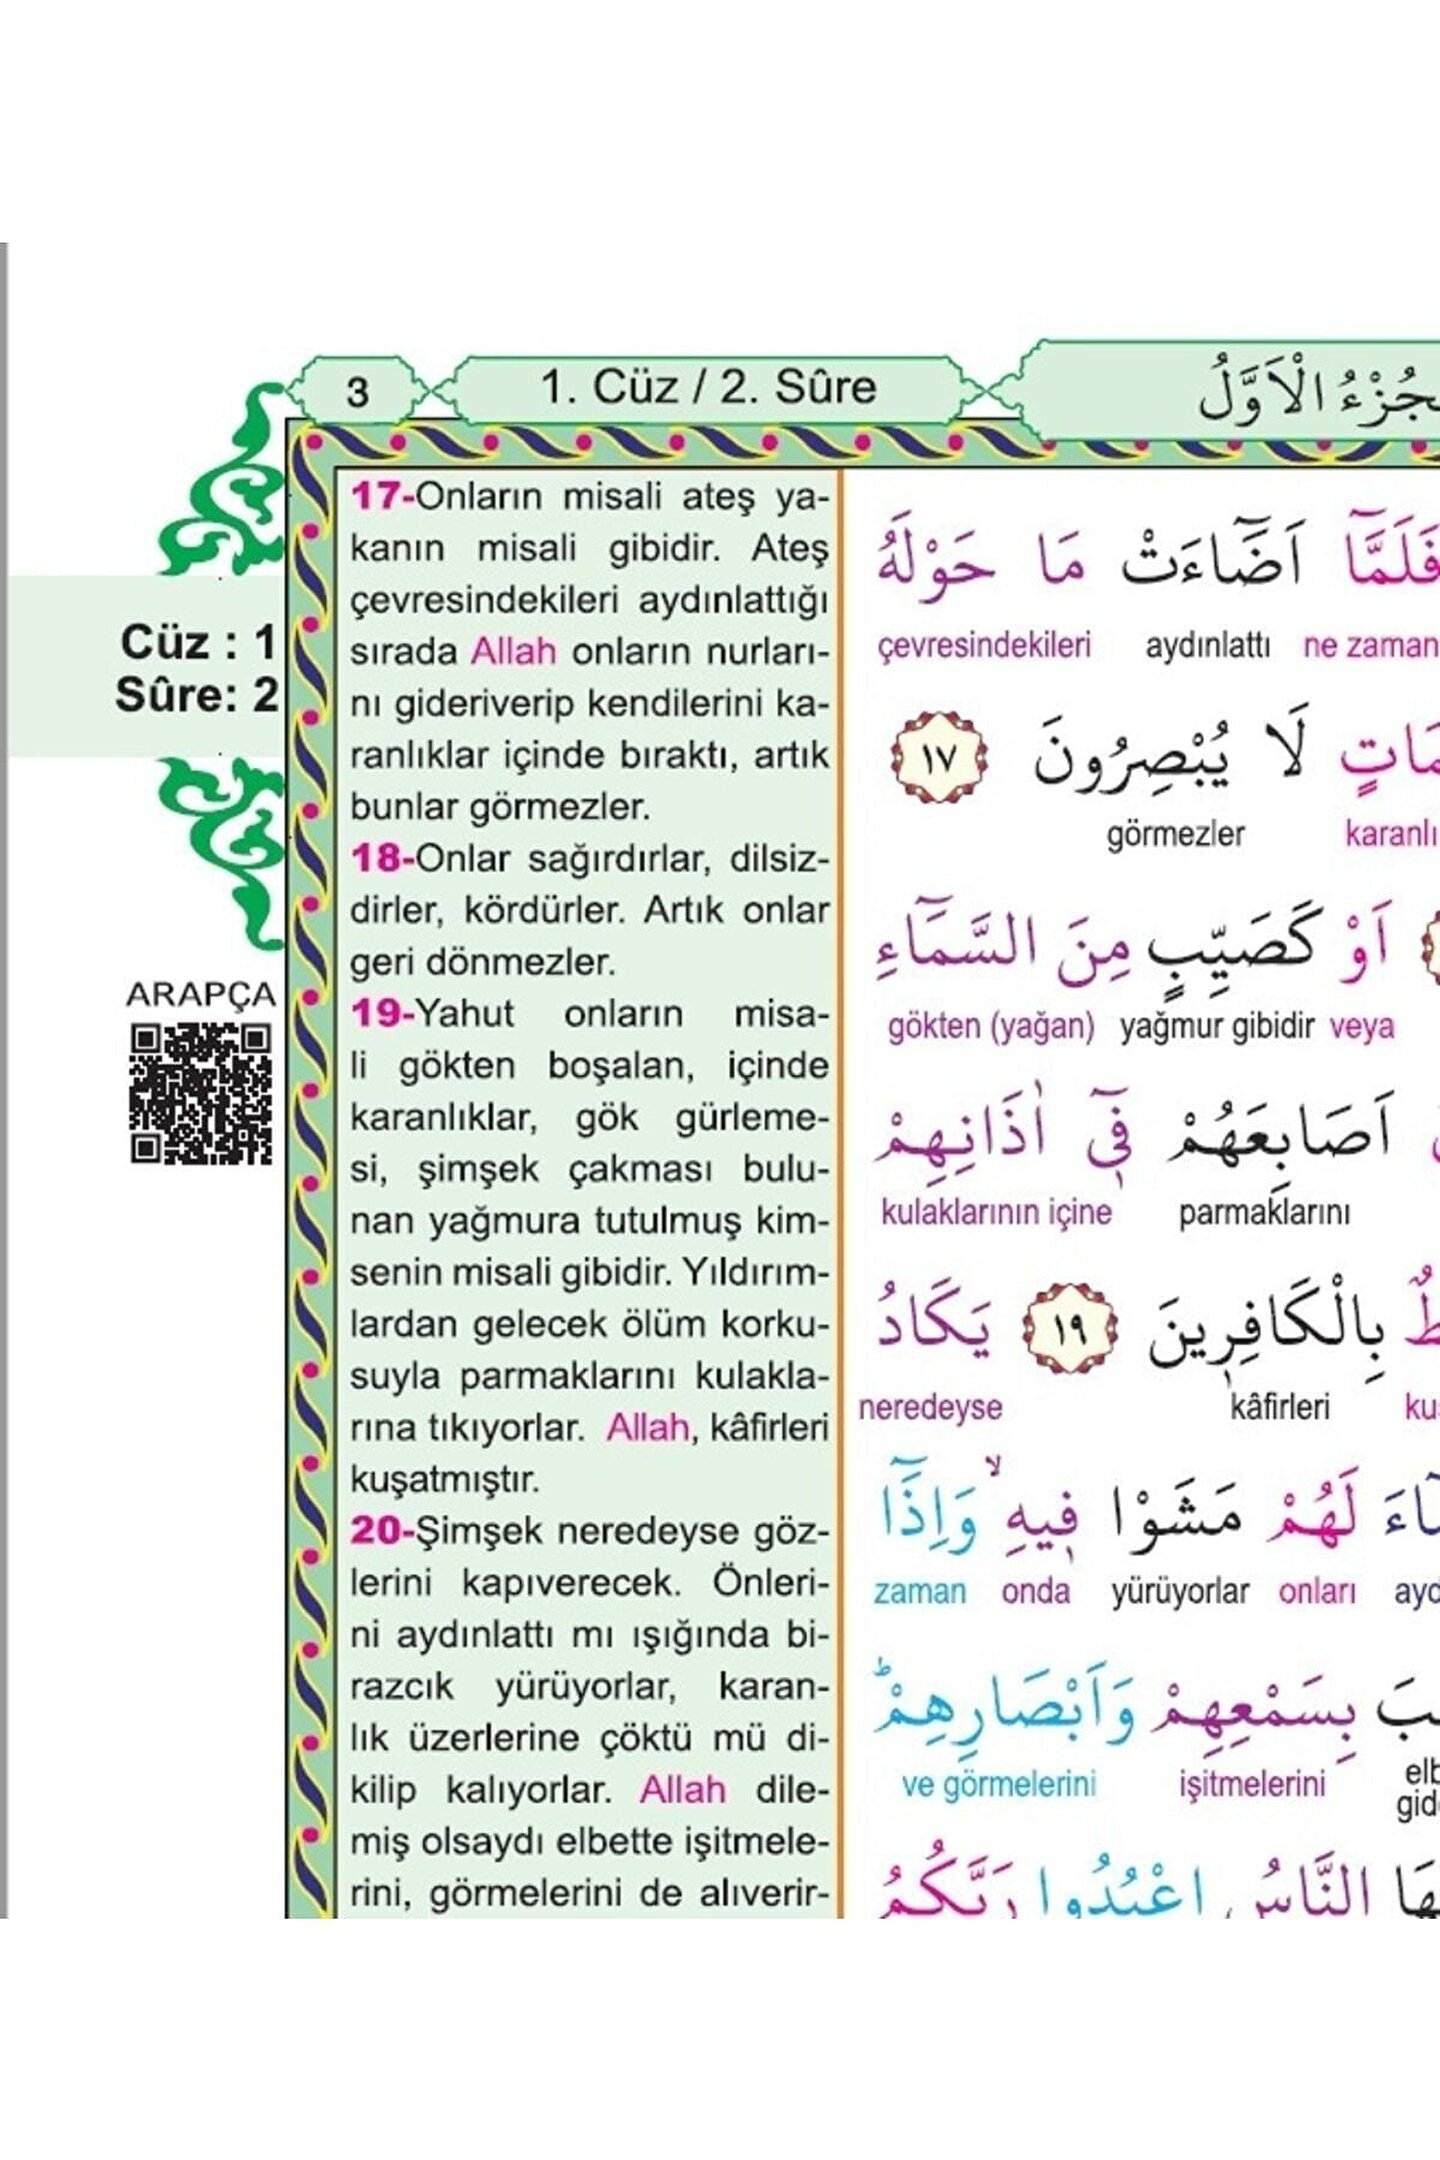 3
1. Cüz / 2. Sûre
الْاَوَّلُ
Cüz : 1
Sûre: 2
ARAPÇA
17-Onların misali ateş ya-
kanın misali gibidir. Ateş
çevresindekileri aydınlattığı
sırada Allah onların nurları-
nı gideriverip kendilerini ka-
ranlıklar içinde bıraktı, artık
bunlar görmezler.
18-Onlar sağırdırlar, dilsiz-
dirler, kördürler. Artık onlar
geri dönmezler.
19-Yahut onların misa-
li gökten boşalan, içinde
karanlıklar, gök gürleme-
si, şimşek çakması bulu-
nan yağmura tutulmuş kim-
senin misali gibidir. Yıldırım-
lardan gelecek ölüm korku-
suyla parmaklarını kulakla-
rına tıkıyorlar. Allah, kâfirleri
kuşatmıştır.
20-Şimşek neredeyse göz-
lerini kapıverecek. Önleri-
ni aydınlattı mı ışığında bi-
razcık yürüyorlar, karan-
lık üzerlerine çöktü mü di-
kilip kalıyorlar. Allah dile-
miş olsaydı elbette işitmele-
rini, görmelerini de alıverir-
فَلَمَّٓا اَضَٓاءَتْ مَا حَوْلَهُ
çevresindekileri aydınlattı ne zaman
لَا يُبْصِرُونَ ١٧
görmezler
اَوْ كَصَيِّبٍ مِنَ السَّمَٓاءِ
gökten (yağan) yağmur gibidir veya
اَصَابِعَهُمْ فٓي اٰذَانِهِمْ
kulaklarının içine parmaklarını
بِالْكَافِرِينَ ١٩ يَكَادُ
neredeyse kâfirleri
لَهُمْ مَشَوْا فِيهِۙ وَاِذَٓا
zaman onda yürüyorlar onları
بِسَمْعِهِمْ وَاَبْصَارِهِمْۜ
ve görmelerini işitmelerini
النَّاسُ اعْبُدُوا رَبَّكُمُ